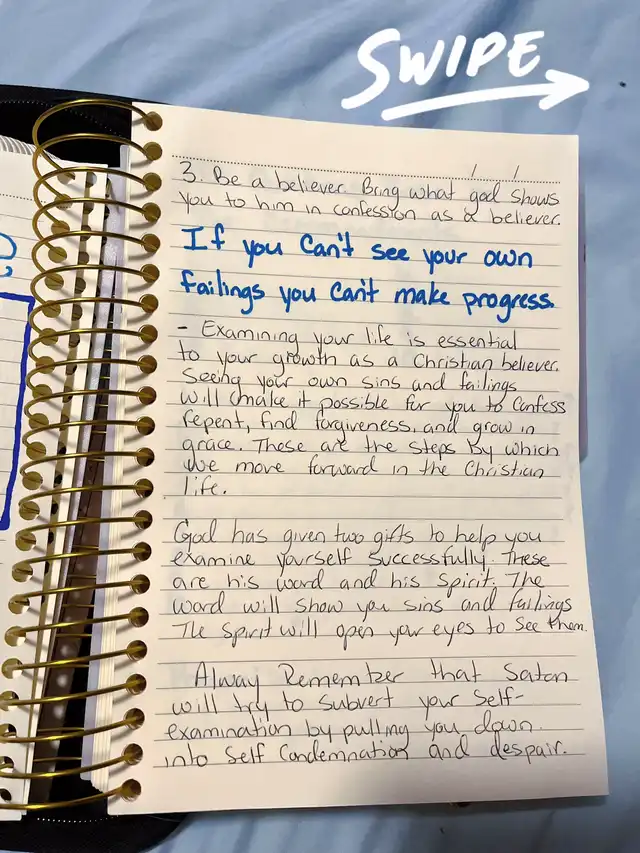 SWIPE
/ /
3. Be a believer. Bring what god shows
you to him in confession as a believer.
If you can't see your own
failings you can't make progress.
- Examining your life is essential
to your growth as a Christian believer.
Seeing your own sins and failings
will make it possible for you to confess
repent, find forgiveness, and grow in
grace. These are the steps by which
we move forward in the Christian
life.
God has given two gifts to help you
examine yourself successfully. These
are his word and his spirit. The
word will show you sins and failings
The spirit will open your eyes to see them.
Alway Remember that Satan
will try to subvert your self-
examination by pulling you down
into self condemnation and despair.